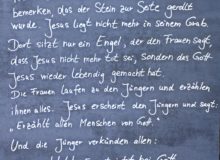 bemerken, dass der Stein zur Seite gerollt
wurde. Jesus liegt nicht mehr in seinem Grab.
Dort sitzt nur ein Engel, der den Frauen sagt,
dass Jesus nicht mehr tot sei, sondern das Gott
Jesus wieder lebendig gemacht hat.
Die Frauen laufen zu den Jüngern und erzählen
ihnen alles. Jesus erscheint den Jüngern und sagt:
„Erzählt allen Menschen von Gott."
Und die Jünger verkünden allen: